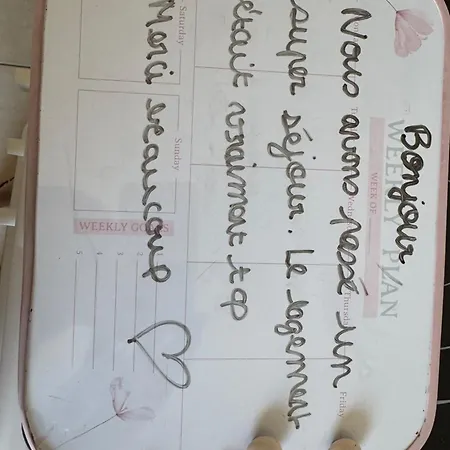 Bonjour
WEEKLY PLAN
WEEK OF
Nous avons passé un
super séjour. Le logement
était vraiment top
Merci beaucoup ♡
Thursday
Friday
Saturday
Sunday
WEEKLY GOALS
1
2
3
4
5